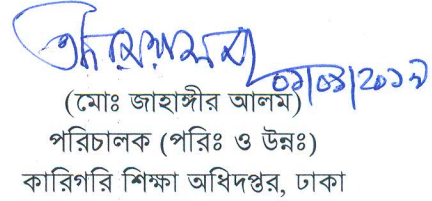 (মোঃ জাহাঙ্গীর আলম)
পরিচালক (পরিঃ ও উন্নঃ)
কারিগরি শিক্ষা অধিদপ্তর, ঢাকা